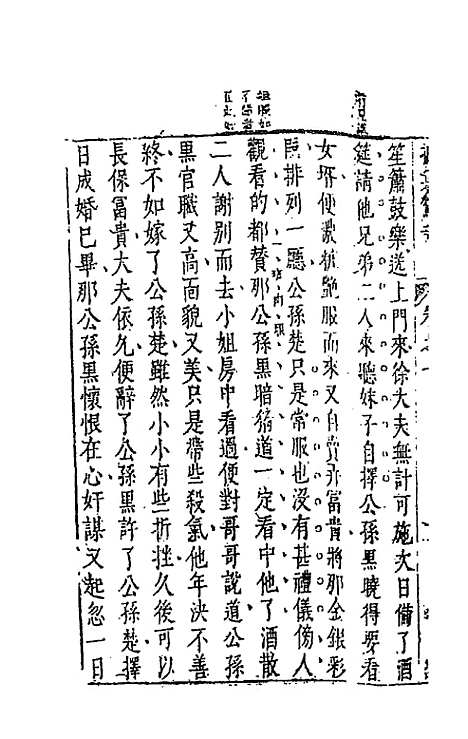 笙簫鼓樂送上門來徐大夫無計可施次日備了酒
筵請他兄弟二人來聽妹子自擇公孫黑曉得要看
女壻便濃粧艷服而來又自賣弄富貴將那金銀彩
叚排列一廳公孫楚只是常服也沒有甚禮儀傍人
觀看的都贊那公孫黑暗猜道一定看中他了酒散
二人謝別而去小姐房中看過便對哥哥說道公孫
黑官職又高面貌又美只是帶些殺氣他年決不善
終不如嫁了公孫楚雖然小小有些折挫久後可以
長保富貴大夫依允便辭了公孫黑許了公孫楚擇
日成婚已畢那公孫黑懷恨在心奸謀又起忽一日